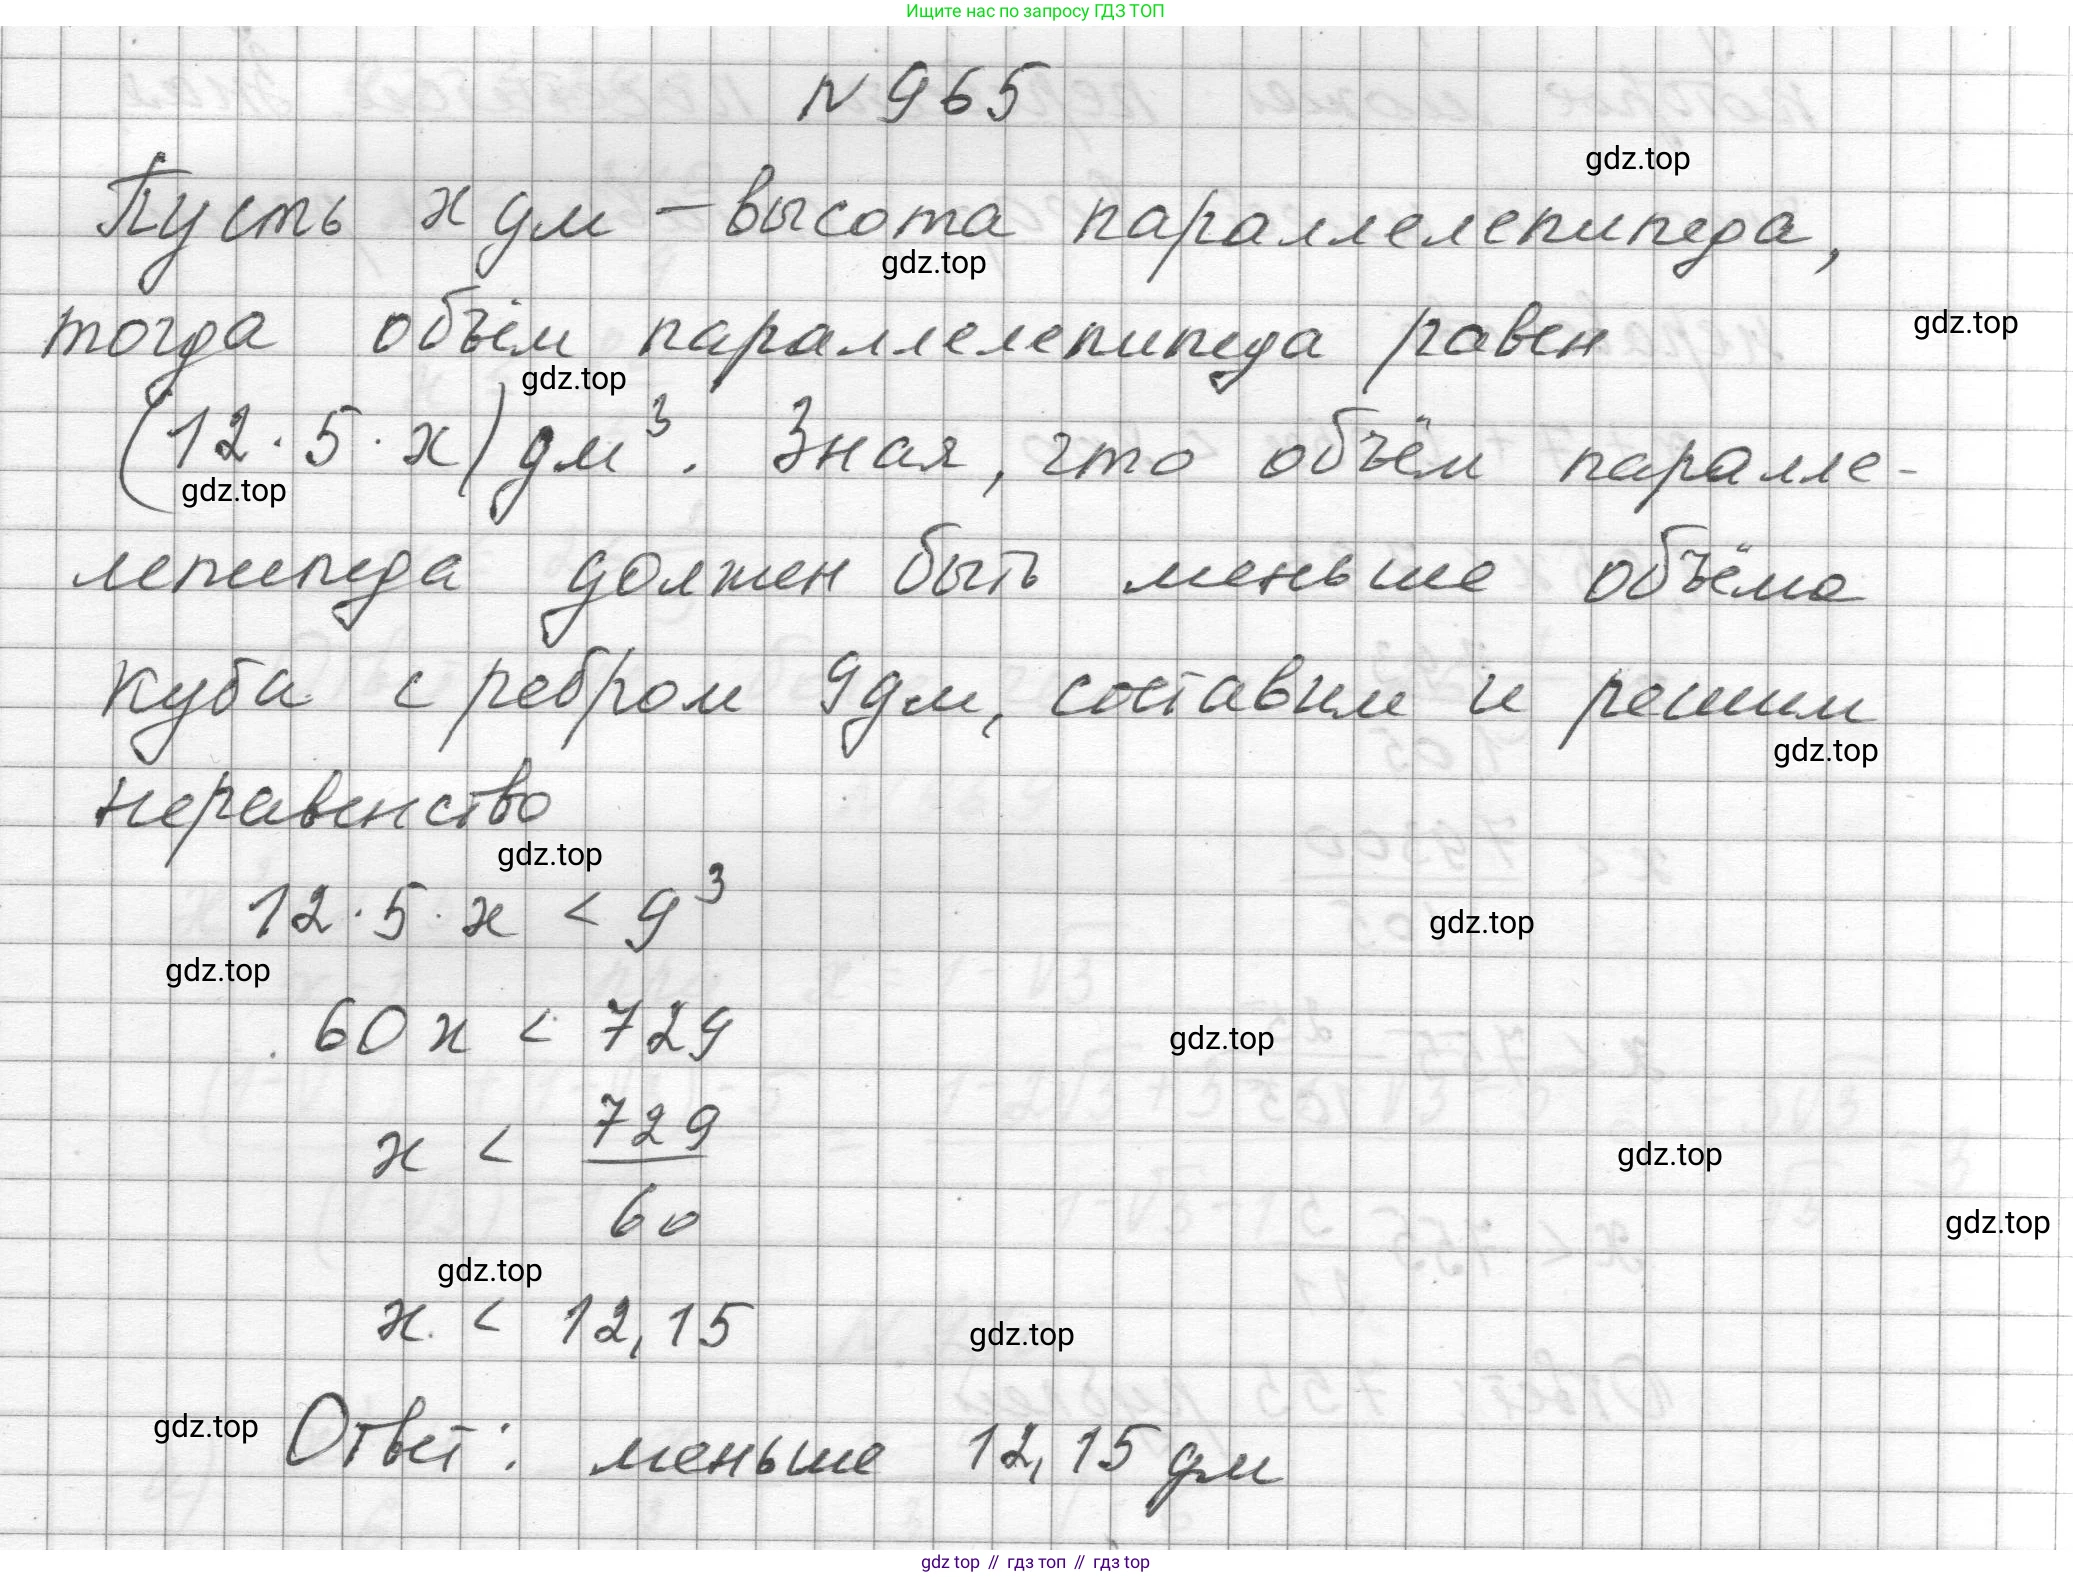 Ищите нас по запросу ГДЗ ТОП
N 965
gdz.top
Пусть x дм – высота параллелепипеда,
gdz.top
тогда объём параллелепипеда равен
gdz.top
gdz.top
(12 · 5 · x) дм³. Зная, что объём паралле-
gdz.top
лепипеда должен быть меньше объёма
куба с ребром 9дм, составим и решим
gdz.top
неравенство
gdz.top
12 · 5 · x < 9³
gdz.top
gdz.top
60 x < 729
gdz.top
x < 729/60
gdz.top
gdz.top
gdz.top
x < 12,15
gdz.top
gdz.top
Ответ: меньше 12,15 дм
gdz top // гдз топ // гдз top